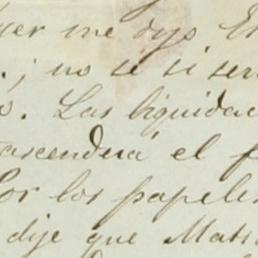 me dijo
; no sé si ser
. Las liquidac
ascenderá el f
Por los papeles
dije que Mati